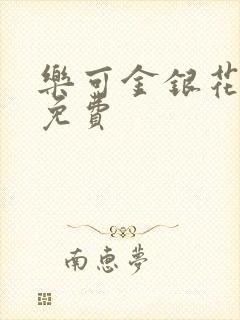 樂可金銀花
免費
南惠夢